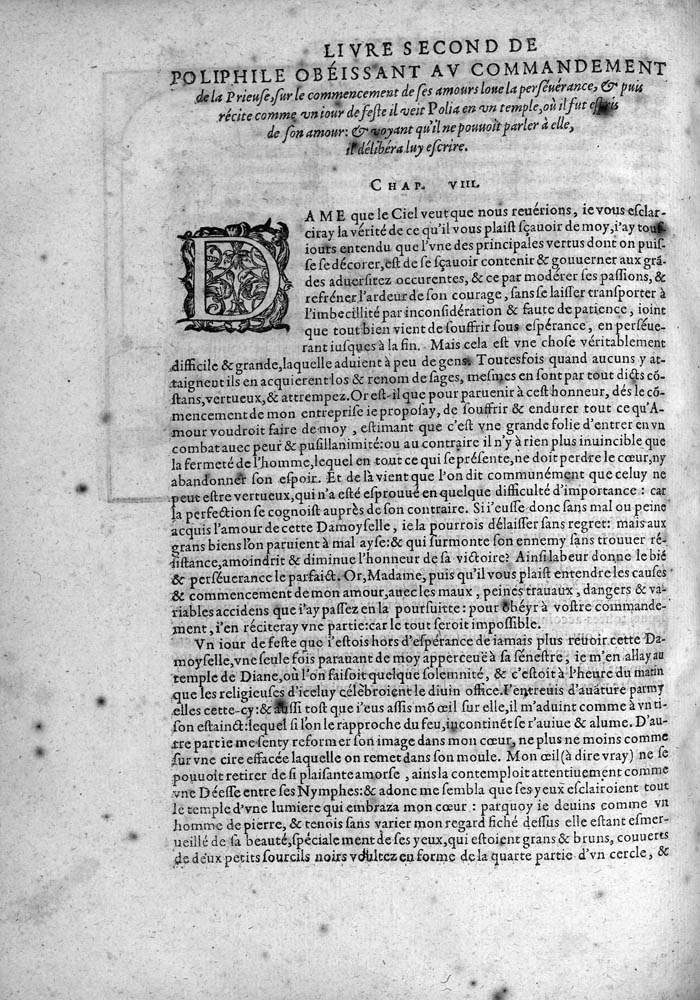 LIVRE SECOND DE
POLIPHILE OBÉISSANT AV COMMANDEMENT
de la Prieuſe, ſur le commencement de ſes amours loue la perſéuérance, & puis
récite comme vn iour de feſte il veit Polia en vn temple, où il fut eſpris
de ſon amour: & voyant qu'il ne pouuoit parler à elle,
il délibéra luy eſcrire.
CHAP. VIII.
DAME que le Ciel veut que nous reuérions, ie vous eſclar-
ciray la vérité de ce qu'il vous plaiſt ſçauoir de moy, i'ay touſ-
iours entendu que l'vne des principales vertus dont on puiſ-
ſe ſe décorer, eſt de ſe ſçauoir contenir & gouuerner aux grã-
des aduerſitez occurentes, & ce par modérer ſes paſſions, &
refréner l'ardeur de ſon courage, ſans ſe laiſſer tranſporter à
l'imbecillité par inconſidération & faute de patience, ioint
que tout bien vient de ſouffrir ſous eſpérance, en perſéue-
rant iuſques à la fin. Mais cela eſt vne choſe véritablement
difficile & grande, laquelle aduient à peu de gens. Toutesfois quand aucuns y at-
taignent ils en acquierent los & renom de ſages, meſmes en ſont par tout dicts cõ-
ſtans, vertueux, & attrempez. Or eſt-il que pour paruenir à ceſt honneur, dés le cõ-
mencement de mon entrepriſe ie propoſay, de ſouffrir & endurer tout ce qu'A-
mour voudroit faire de moy, eſtimant que c'eſt vne grande folie d'entrer en vn
combat auec peur & puſillanimité: ou au contraire il n'y à rien plus inuincible que
la fermeté de l'homme, lequel en tout ce qui ſe préſente, ne doit perdre le cœur, ny
abandonner ſon eſpoir. Et de là vient que l'on dit communément que celuy ne
peut eſtre vertueux, qui n'a eſté eſprouué en quelque difficulté d'importance : car
la perfection ſe cognoiſt auprès de ſon contraire. Si i'euſſe donc ſans mal ou peine
acquis l'amour de cette Damoyſelle, ie la pourrois délaiſſer ſans regret: mais aux
grans biens l'on paruient à mal ayſe: & qui ſurmonte ſon ennemy ſans trouuer ré-
ſiſtance, amoindrit & diminue l'honneur de ſa victoire? Ainſi labeur donne le bié
& perſéuerance le parfaict. Or, Madame, puis qu'il vous plaiſt entendre les cauſes
& commencement de mon amour, auec les maux, peines trauaux, dangers & va-
riables accidens que i'ay paſſez en la pourſuitte: pour obéyr à voſtre commande-
ment, i'en réciteray vne partie: car le tout ſeroit impoſſible.
Vn iour de feſte que i'eſtois hors d'eſpérance de iamais plus reuoir cette Da-
moyſelle, vne ſeule fois parauant de moy apperceuë à ſa ſéneſtre, ie m'en allay au
temple de Diane, où l'on faiſoit quelque ſolemnité, & c'eſtoit à l'heure du matin
que les religieuſes d'iceluy célébroient le diuin office. I'entreuis d'auãture parmy
elles cette-cy: & auſſi toſt que i'eus aſſis mõ œil ſur elle, il m'aduint comme à vn ti-
ſon eſtainct: lequel ſi l'on le rapproche du feu, incontinẽt ſe r'auiue & alume. D'au-
tre partie me ſenty reformer ſon image dans mon cœur, ne plus ne moins comme
ſur vne cire effacée laquelle on remet dans ſon moule. Mon œil (à dire vray) ne ſe
pouuoit retirer de ſi plaiſante amorſe, ains la contemploit attentiuement comme
vne Déeſſe entre ſes Nymphes: & adonc me ſembla que ſes yeux eſclairoient tout
le temple d'vne lumiere qui embraza mon cœur : parquoy ie deuins comme vn
homme de pierre, & tenois ſans varier mon regard fiché deſſus elle eſtant eſmer-
ueillé de ſa beauté, ſpéciale ment de ſes yeux, qui eſtoient grans & bruns, couuerts
de deux petits ſourcils noirs voultez en forme de la quarte partie d'vn cercle, &